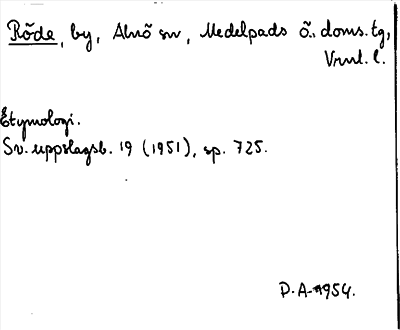 Röde, by, Alnö sn, Medelpads ö. doms.tg,
Vrnl. l.
Etymologi.
Sv. uppslagsb. 19 (1951), sp. 725.
D.A. 1954.